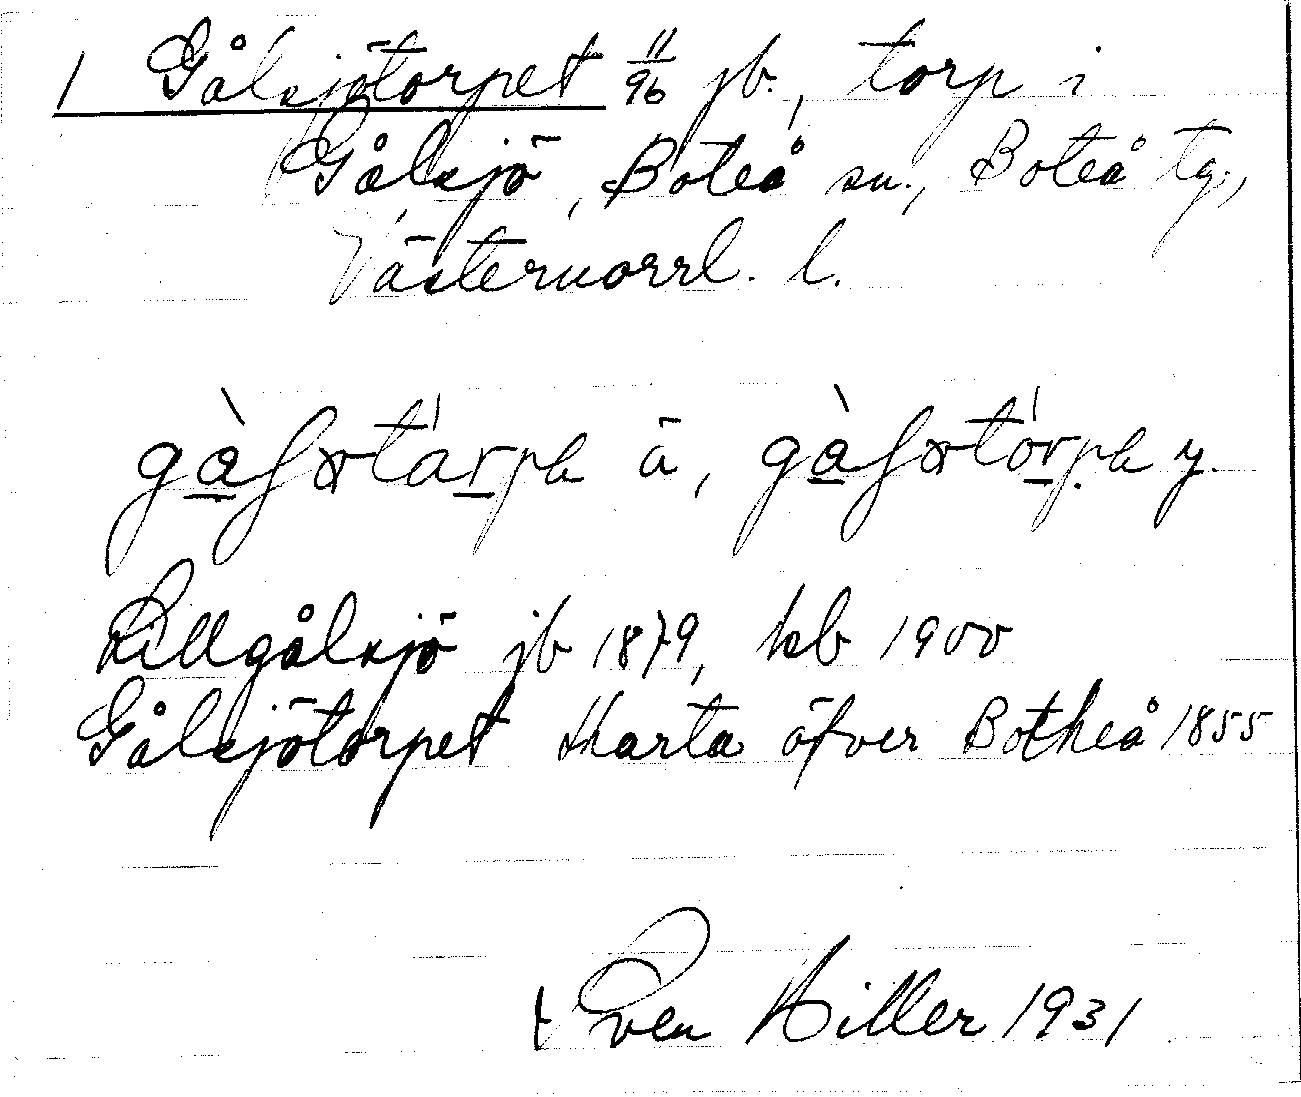 1 Gålsjötorpet 11/96 jb., torp i
Gålsjö, Boteå sn., Boteå tg.,
Västernorrl. l.
ä, y.
Lillgålsjö jb 1879, kb 1900
Gålsjötorpet Karta öfver Botheå 1855
Sven Hiller 1931